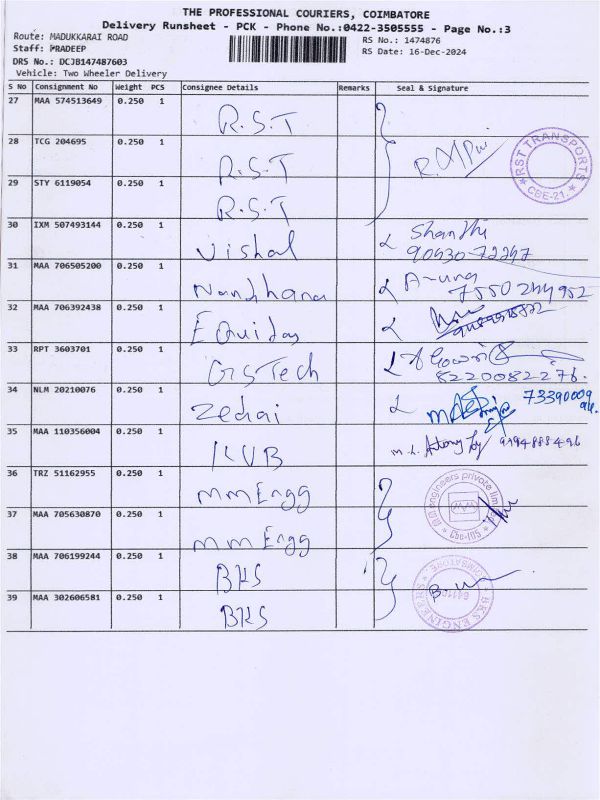 THE PROFESSIONAL COURIERS, COIMBATORE
Delivery Runsheet - PCK - Phone No.:0422-3505555 - Page No.:3
Route: MADUKKARAI ROAD
RS No.: 1474876
Staff: PRADEEP
RS Date: 16-Dec-2024
DRS No.: DCJB147487603
Vehicle: Two Wheeler Delivery
S No Consignment No Weight PCS Consignee Details Remarks Seal & Signature
27 MAA 574513649 0.250 1 R.S.T
28 TCG 204695 0.250 1 R.S.T
RST TRANSPORTS
CBE-21.
29 STY 6119054 0.250 1 R.S.T
30 IXM 507493144 0.250 1 Vishal Shanthi
31 MAA 706505200 0.250 1 Nandhana
7550244952
32 MAA 706392438 0.250 1 Equitas
33 RPT 3603701 0.250 1 GSTech
8220082276.
34 NLM 20210076 0.250 1
35 MAA 110356004 0.250 1 KVB
36 TRZ 51162955 0.250 1 MM Engg
engineers private
37 MAA 705630870 0.250 1 MM Engg
38 MAA 706199244 0.250 1 BKS
39 MAA 302606581 0.250 1 BKS
BKS ENGINEERS